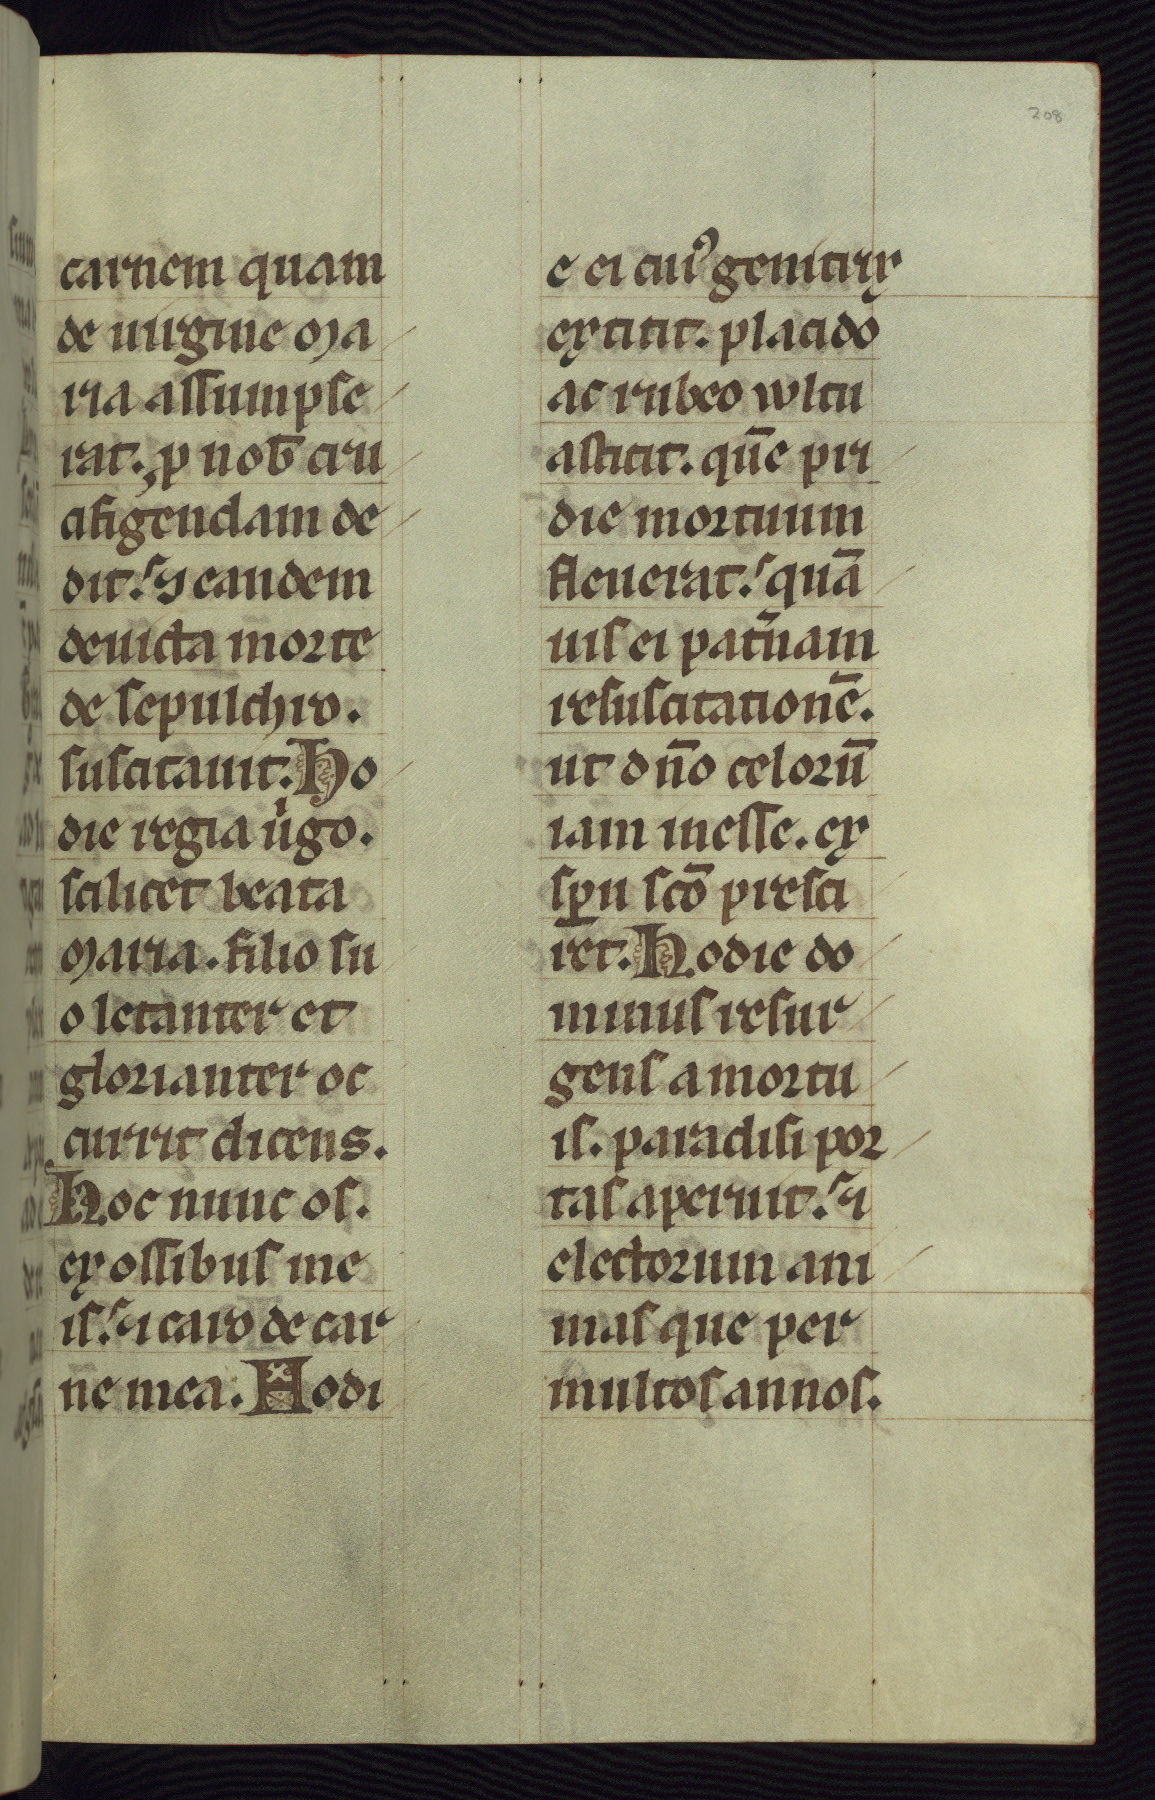 208
carnem quam
de uirgine Ma
ria assumpse
rat. ꝓ nob̄ cru
cifigendam de
dit. ⁊ eandem
deuicta morte
de sepulchro.
suscitauit. Ho
die regia uͥgo.
scilicet beata
Maria. filio su
o letanter et
glorianter oc
currit dicens.
Hoc nunc os.
ex ossibus me
is. ⁊ caro de car
ne mea. Hodi
e ei cuiꝰ genitrix
extitit. placido
ac rubeo wltu
astitit. quē pri
die mortuum
fleuerat. quā
uis ei patn̄am
resuscitationē.
ut dn̄o celorū
iam inesse. ex
sp̄u sc̄o presci
ret. Hodie do
minus resur
gens a mortu
is. paradisi por
tas aperuit. ⁊
electorum ani
mas que per
multos annos.